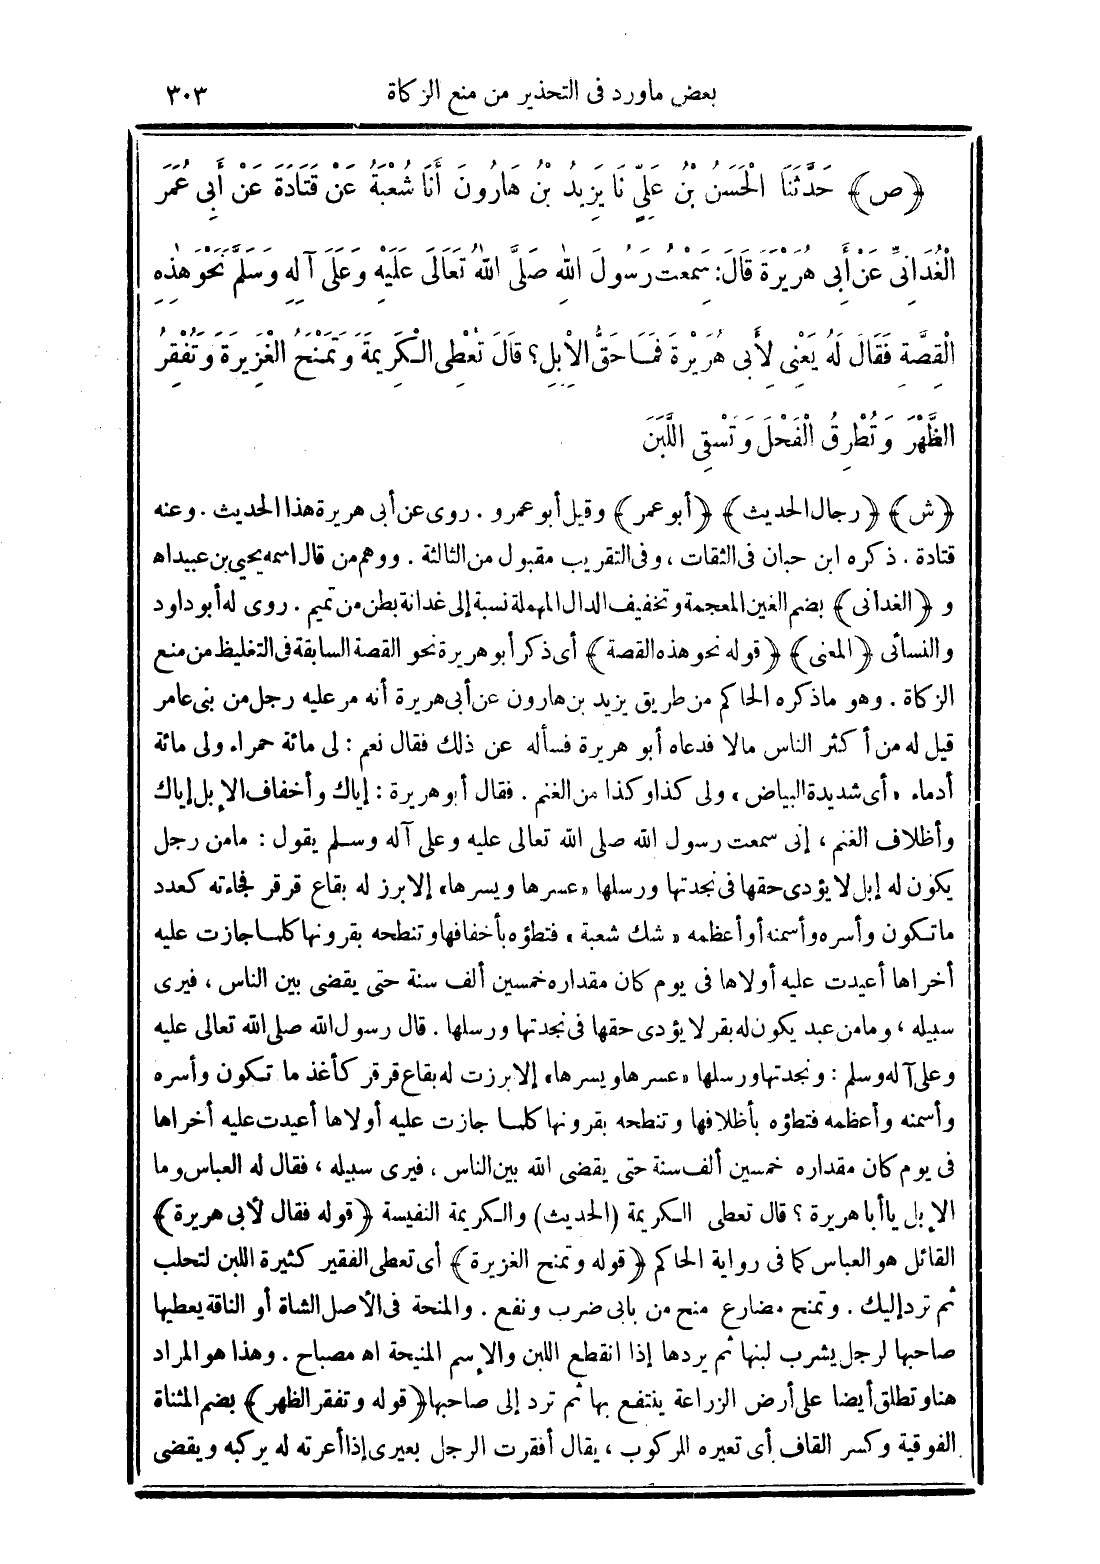 بعض ماورد فى التحذير من منع الزكاة ٣٠٣
﴿ص﴾ حَدَّثَنَا الْحَسَنُ بْنُ عَلِيٍّ نَا يَزِيدُ بْنُ هَارُونَ أَنَا شُعْبَةُ عَنْ قَتَادَةَ عَنْ أَبِى عُمَرَ
الْغُدَانِىِّ عَنْ أَبِى هُرَيْرَةَ قَالَ: سَمِعْتُ رَسُولَ اللهِ صَلَّى اللهُ تَعَالَى عَلَيْهِ وَعَلَى آلِهِ وَسَلَّمَ نَحْوَ هٰذِهِ
الْقِصَّةِ فَقَالَ لَهُ يَعْنِى لِأَبِى هُرَيْرَةَ فَمَا حَقُّ الْإِبِلِ؟ قَالَ تُعْطِى الْكَرِيمَةَ وَتَمْنَحُ الْغَزِيرَةَ وَتُفْقِرُ
الظَّهْرَ وَتُطْرِقُ الْفَحْلَ وَتَسْقِى اللَّبَنَ
﴿ش﴾ ﴿رجال الحديث﴾ ﴿أبو عمر﴾ وقيل أبو عمرو . روى عن أبى هريرة هذا الحديث . وعنه
قتادة . ذكره ابن حبان فى الثقات ، وفى التقريب مقبول من الثالثة . ووهم من قال اسمه يحيى بن عبيد اه
و ﴿الغدانى﴾ بضم الغين المعجمة وتخفيف الدال المهملة نسبة إلى غدانة بطن من تميم . روى له أبو داود
والنسائى ﴿المعنى﴾ ﴿قوله نحو هذه القصة﴾ أى ذكر أبو هريرة نحو القصة السابقة فى التغليظ من منع
الزكاة . وهو ماذكره الحاكم من طريق يزيد بن هارون عن أبى هريرة أنه مر عليه رجل من بنى عامر
قيل له من أكثر الناس مالا فدعاه أبو هريرة فسأله عن ذلك فقال نعم : لى مائة حمراء ولى مائة
أدماء «أى شديدة البياض» ولى كذا وكذا من الغنم . فقال أبو هريرة : إياك وأخفاف الإبل إياك
وأظلاف الغنم ، إنى سمعت رسول الله صلى الله تعالى عليه وعلى آله وسلم يقول : مامن رجل
يكون له إبل لا يؤدى حقها فى نجدتها ورسلها «عسرها ويسرها» إلا برز له بقاع قرقر فجاءته كعدد
ماتكون وأسره وأسمنه أو أعظمه «شك شعبة» فتطؤه بأخفافها وتنطحه بقرونها كلما جازت عليه
أخراها أعيدت عليه أولاها فى يوم كان مقداره خمسين ألف سنة حتى يقضى بين الناس ، فيرى
سبيله ، ومامن عبد يكون له بقر لا يؤدى حقها فى نجدتها ورسلها . قال رسول الله صلى الله تعالى عليه
وعلى آله وسلم : ونجدتها ورسلها «عسرها ويسرها» إلا برزت له بقاع قرقر كأغذ ما تكون وأسره
وأسمنه وأعظمه فتطؤه بأظلافها وتنطحه بقرونها كلما جازت عليه أولاها أعيدت عليه أخراها
فى يوم كان مقداره خمسين ألف سنة حتى يقضى الله بين الناس ، فيرى سبيله ، فقال له العباس وما
الإبل ياأبا هريرة ؟ قال تعطى الكريمة (الحديث) والكريمة النفيسة ﴿قوله فقال لأبى هريرة﴾
القائل هو العباس كما فى رواية الحاكم ﴿قوله وتمنح الغزيرة﴾ أى تعطى الفقير كثيرة اللبن لتحلب
ثم ترد إليك . وتمنح مضارع منح من بابى ضرب ونفع . والمنحة فى الأصل الشاة أو الناقة يعطيها
صاحبها لرجل يشرب لبنها ثم يردها إذا انقطع اللبن والإسم المنيحة اه مصباح . وهذا هو المراد
هنا وتطلق أيضا على أرض الزراعة ينتفع بها ثم ترد إلى صاحبها ﴿قوله وتفقر الظهر﴾ بضم المثناة
الفوقية وكسر القاف أى تعيره للركوب ، يقال أفقرت الرجل بعيرى إذا أعرته له يركبه ويقضى